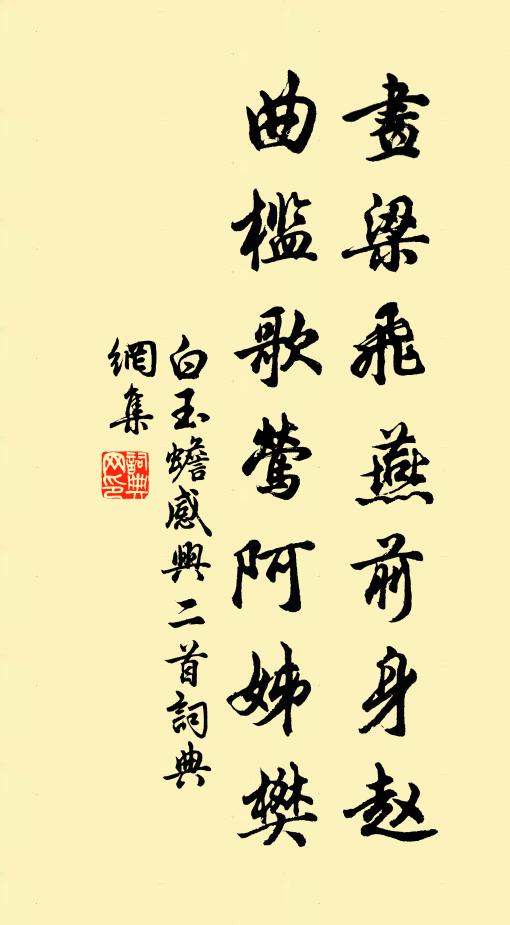 畫梁飛燕前身赵
曲檻歌鶯阿姊樊
白玉蟾感興二首詞典
網集
詞典網印